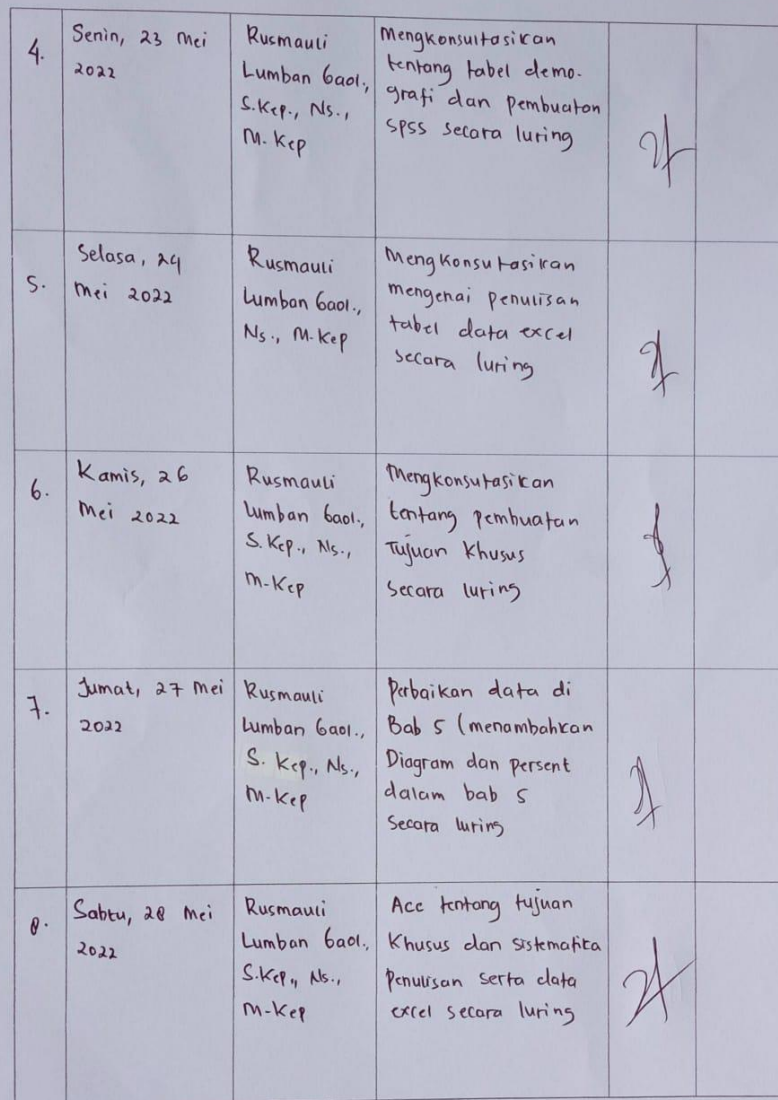 4.
Senin, 23 Mei
2022
Rusmauli
Lumban Gaol.,
S.Kep., Ns.,
M. Kep
Mengkonsultasikan
tentang tabel demo-
grafi dan pembuatan
SPSS secara luring
5.
Selasa, 24
Mei 2022
Rusmauli
Lumban Gaol.,
Ns., M.Kep
Mengkonsutasikan
mengenai penulisan
tabel data excel
secara luring
6.
Kamis, 26
Mei 2022
Rusmauli
Lumban Gaol.,
S. Kep., Ns.,
M-Kep
Mengkonsutasikan
tentang pembuatan
Tujuan Khusus
Secara luring
7.
Jumat, 27 Mei
2022
Rusmauli
Lumban Gaol.,
S. Kep., Ns.,
M-Kep
Perbaikan data di
Bab 5 (menambahkan
Diagram dan persent
dalam bab 5
Secara luring
8.
Sabtu, 28 Mei
2022
Rusmauli
Lumban Gaol.,
S.Kep., Ns.,
M-Kep
Acc tentang tujuan
Khusus dan sistematika
Penulisan serta data
excel secara luring